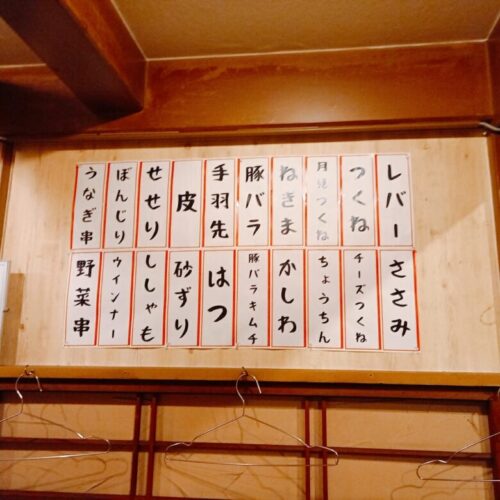 レバー
つくね
月見つくね
ねぎま
豚バラ
手羽先
皮
せせり
ぼんじり
うなぎ串
ささみ
チーズつくね
ちょうちん
かしわ
豚バラキムチ
はつ
砂ずり
ししゃも
ウインナー
野菜串